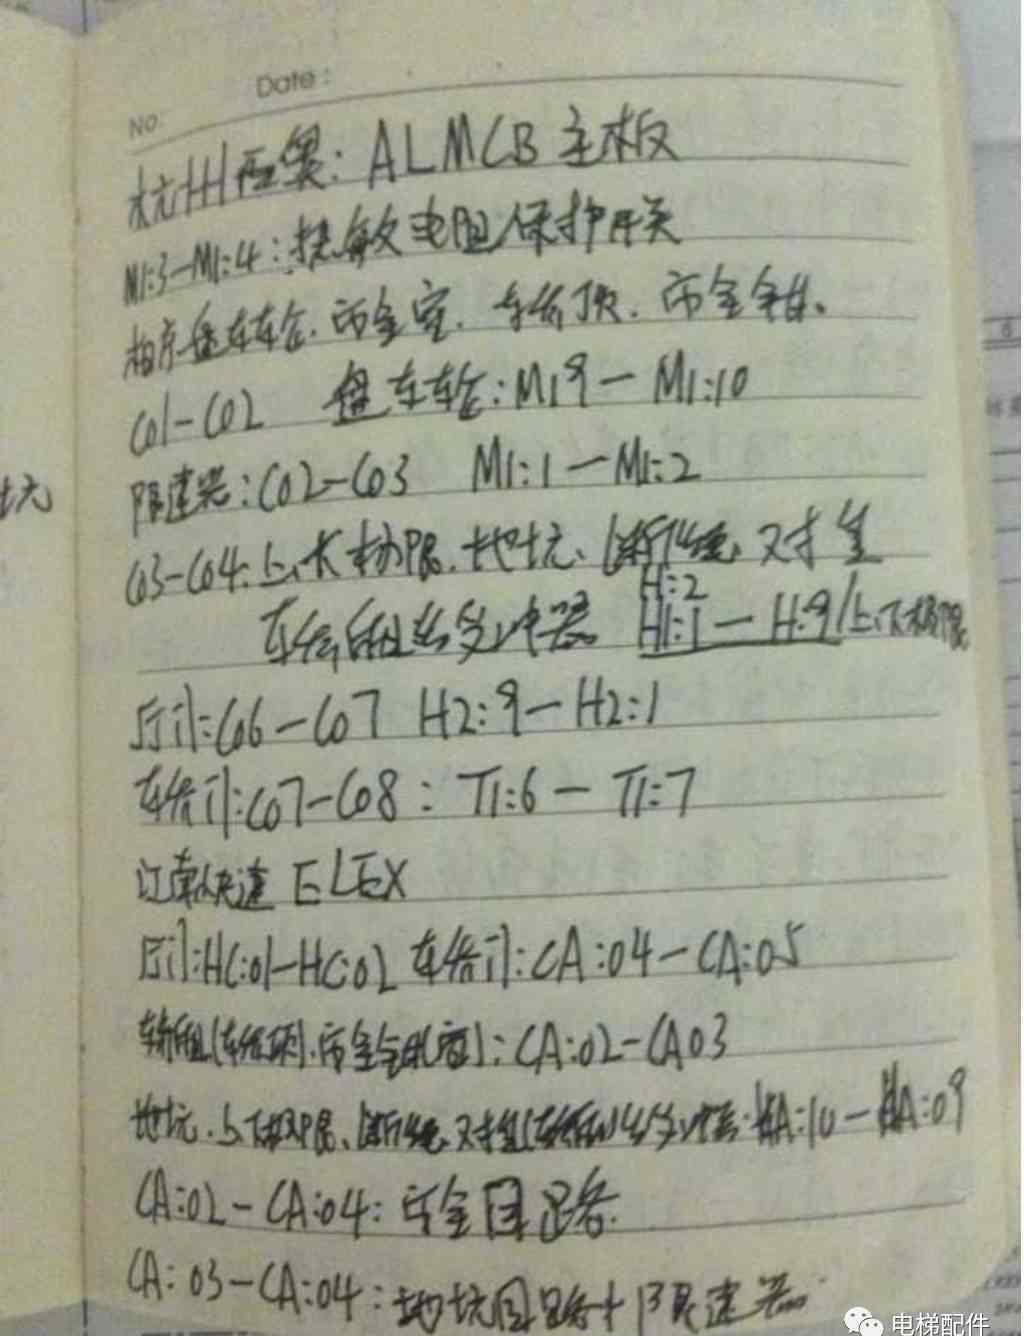 Date:
No.
杭州西奥: ALMCB 主板
M1:3-M1:4:热敏电阻保护开关
相序盘车轮.安全窗.轿顶.安全钳.
C01-C02 盘车轮:M1 9-M1:10
限速器:C02-C03 M1:1-M1:2
C03-C04:上下极限.地坑.断绳.对重
轿厢缓冲器 H:2
H1:1-H:9/上下极限
厅门:C06-C07 H2:9-H2:1
轿门:C07-C08:T1:6-T1:7
江南快速 ELEX
厅门:HC:01-HC:02 轿门:CA:04-CA:05
轿厢(轿顶.安全钳窗):CA:02-CA03
地坑.上下极限.断绳.对重(轿厢)缓冲器:HA:10-HA:09
CA:02-CA:04:安全回路.
CA:03-CA:04:地坑回路+限速器.
坑
电梯配件